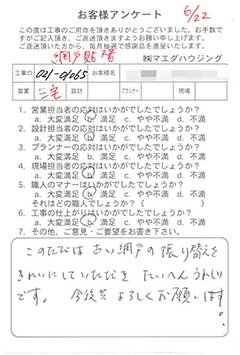 お客様アンケート
5/22
この度は工事のご用命を頂きありがとうございました。お手数で
すがご記入頂き、ご返送頂きますようお願い申し上げます。
ご返送頂いた方から、毎月抽選で感謝品を進呈いたします。
工事の
お客様名
㈱マエダハウジング
営業
三宅
設計
プランナー
現場
1. 営業担当者の応対はいかがでしたでしょうか？
a. 大変満足 b. 満足 c. やや不満 d. 不満
2. 設計担当者の応対はいかがでしたでしょうか？
a. 大変満足 b. 満足 c. やや不満 d. 不満
3. プランナーの応対はいかがでしたでしょうか？
a. 大変満足 b. 満足 c. やや不満 d. 不満
4. 現場担当者の応対はいかがでしたでしょうか？
a. 大変満足 b. 満足 c. やや不満 d. 不満
5. 職人のマナーはいかがでしたでしょうか？
a. 大変満足 b. 満足 c. やや不満 d. 不満
それはどの職人でしょうか？（ ）
6. 工事の仕上がりはいかがでしたでしょうか？
a. 大変満足 b. 満足 c. やや不満 d. 不満
7. その他、ご意見・ご要望をお書き下さい。
このたびは 網戸の張り替えを
きれいにしていただき たいへんうれしい
です。 今後共よろしくお願いします。